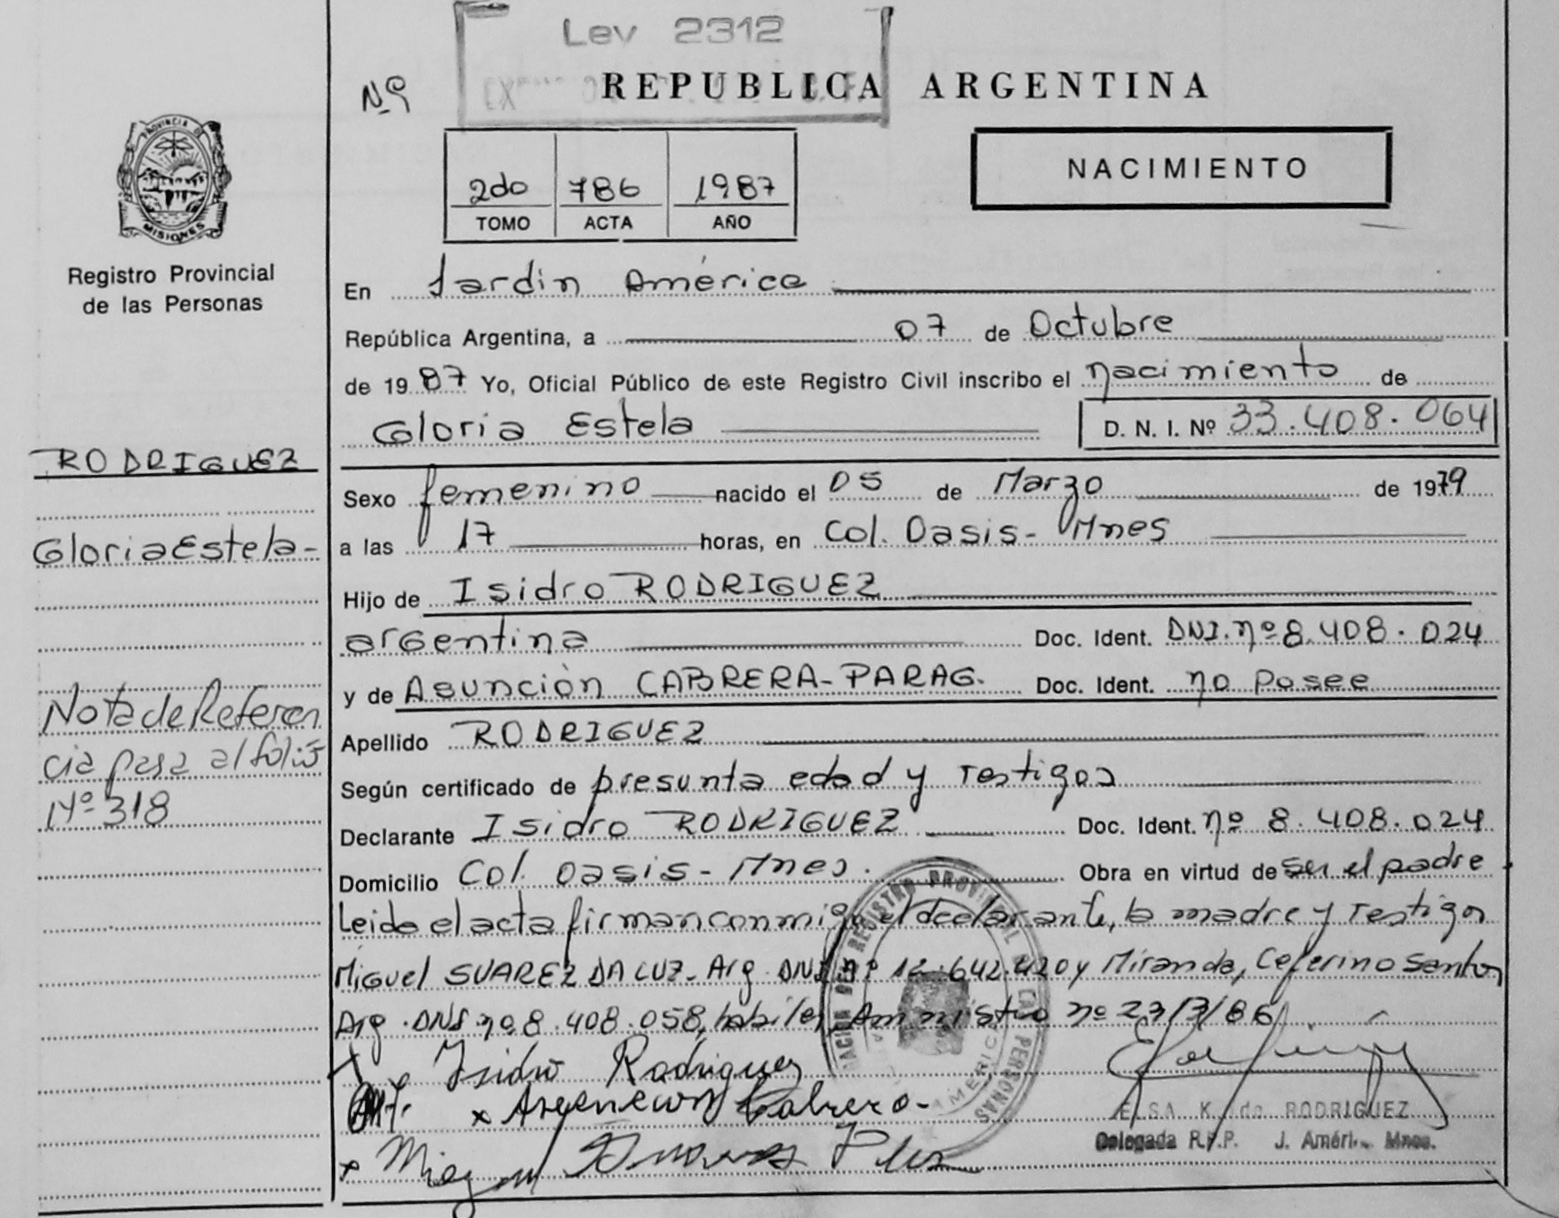 Ley 2312
Nº
REPUBLICA ARGENTINA
PROVINCIA DE
MISIONES
Registro Provincial
de las Personas
2do 786 1987
TOMO ACTA AÑO
NACIMIENTO
En Jardin América
República Argentina, a 07 de Octubre
de 1987 Yo, Oficial Público de este Registro Civil inscribo el nacimiento de
Gloria Estela D. N. I. Nº 33.408.064
RODRIGUEZ
Gloria Estela-
Sexo femenino nacido el 05 de Marzo de 1979
a las 17 horas, en Col. Oasis- Mnes
Hijo de Isidro RODRIGUEZ
argentina Doc. Ident. DNI. nº 8.408.024
y de Asunción CABRERA-PARAG. Doc. Ident. no posee
Nota de Referen
cia pasa al folio
Nº 318
Apellido RODRIGUEZ
Según certificado de presunta edad y testigos
Declarante Isidro RODRIGUEZ Doc. Ident. nº 8.408.024
Domicilio Col. Oasis- Mnes. Obra en virtud de ser el padre
Leida el acta firman conmigo el declarante, la madre y testigos
Miguel SUAREZ DA LUZ- Arg. DNI nº 12.642.420 y Miranda, Ceferino Santos
Arg. DNI nº 8.408.058, habiles, Amnistia nº 23/7/86
Isidro Rodriguez
x Cabrera-
x Miguel
ELSA K. de RODRIGUEZ
Delegada R.P.P. J. Améri. Mnes.